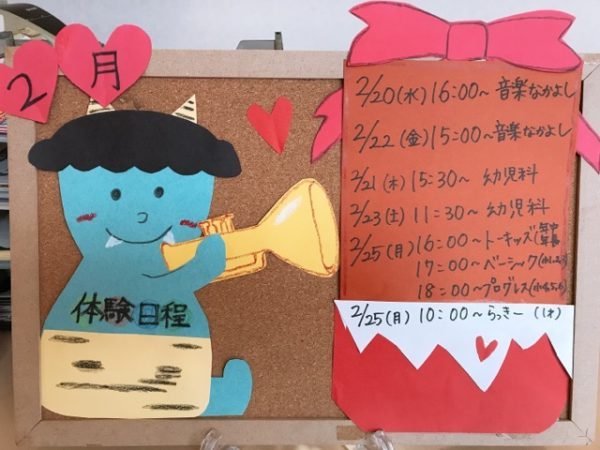 2月
体験日程
2/20(水)16:00~音楽なかよし
2/22(金)15:00~音楽なかよし
2/21(木)15:30~幼児科
2/23(土)11:30~幼児科
2/25(月)16:00~トーキッズ(年中
年長
17:00~ベーシック(小1,2,3)
18:00~プログレス(小4,5,6)
2/25(月)10:00~らっきー(1才)